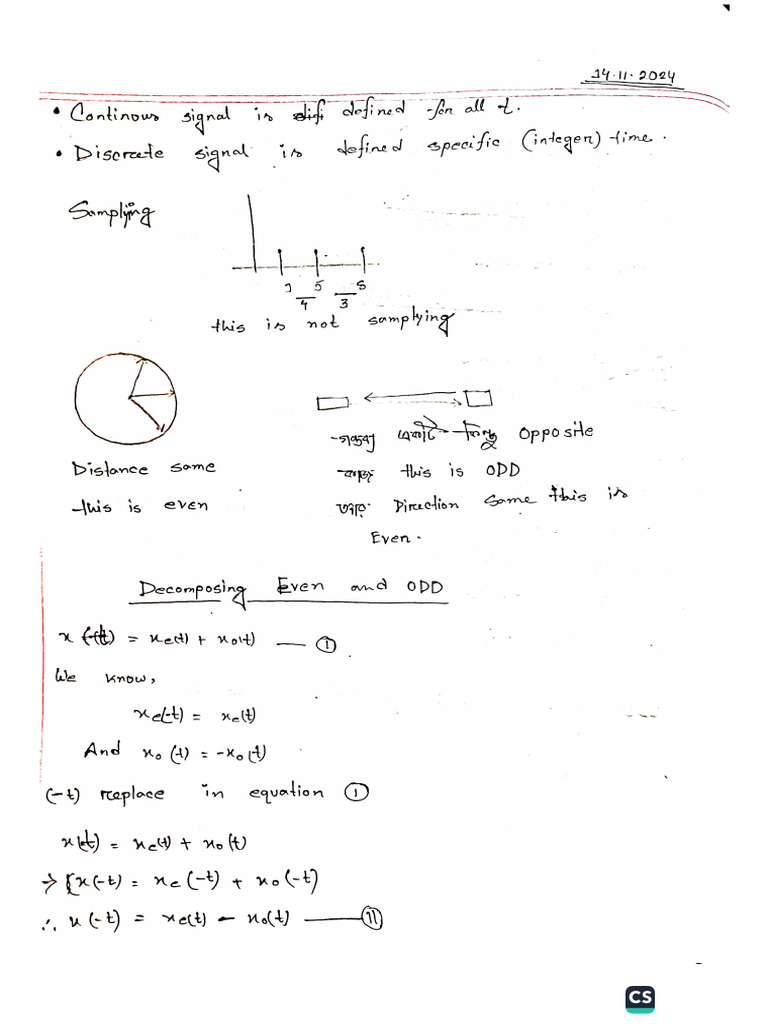 14.11.2024
• Continous signal is defined for all t.
• Discrete signal is defined specific (integer) time.
Samplying
1 5 8
4 3
this is not samplying
গন্তব্য একটি কিন্তু opposite
Distance same
this is ODD
this is even
তবে Direction same this is
Even.
Decomposing Even and ODD
x(t) = xe(t) + xo(t) — ①
We know,
xe(-t) = xe(t)
And xo(t) = -xo(t)
(-t) replace in equation ①
x(t) = xe(t) + xo(t)
→ [x(-t) = xe(-t) + xo(-t)
∴ x(-t) = xe(t) - xo(t) — ⑪
CS